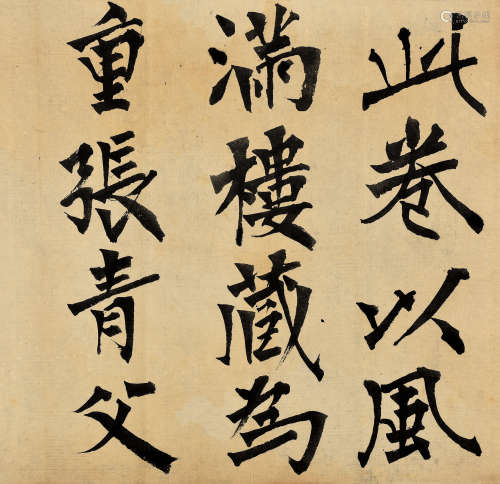 此卷以風
滿樓藏為
重張青父